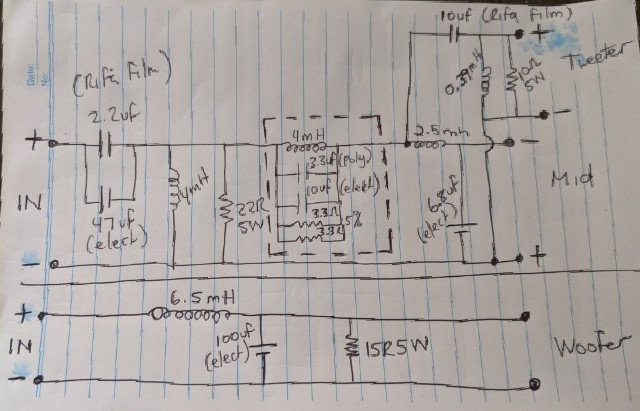 Date:
No:
10uf (Rifa Film)
+
Tweeter
0.37mH
10R
5W
-
(Rifa Film)
2.2uf
+
IN
-
47uf
(elect)
4mH
22R
5W
4mH
3.3uf (poly)
10uf (elect)
3.3Ω
3.3Ω
5%
2.5mH
6.8uf
(elect)
-
Mid
+
+
IN
-
6.5mH
100uf
(elect)
15R5W
Woofer